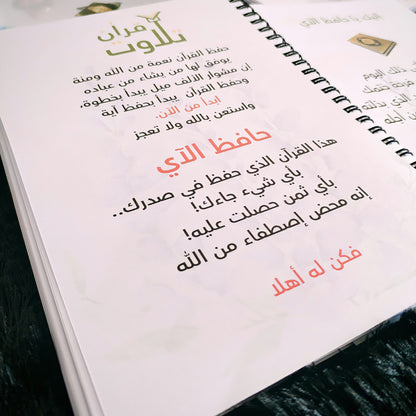 قرآن
تلاوت
حفظ القرآن نعمة من الله ومنة
يوفق لها من يشاء من عباده
إن مشوار الألف ميل يبدأ بخطوة،
وحفظ القرآن يبدأ بحفظ آية
ابدأ من الآن.
واستعن بالله ولا تعجز
حافظ الآي
هذا القرآن الذي حفظ في صدرك..
بأي شيء جاءك!
بأي ثمن حصلت عليه!
إنه محض إصطفاء من الله
فكن له أهلا
حافظ الآي
ذلك اليوم